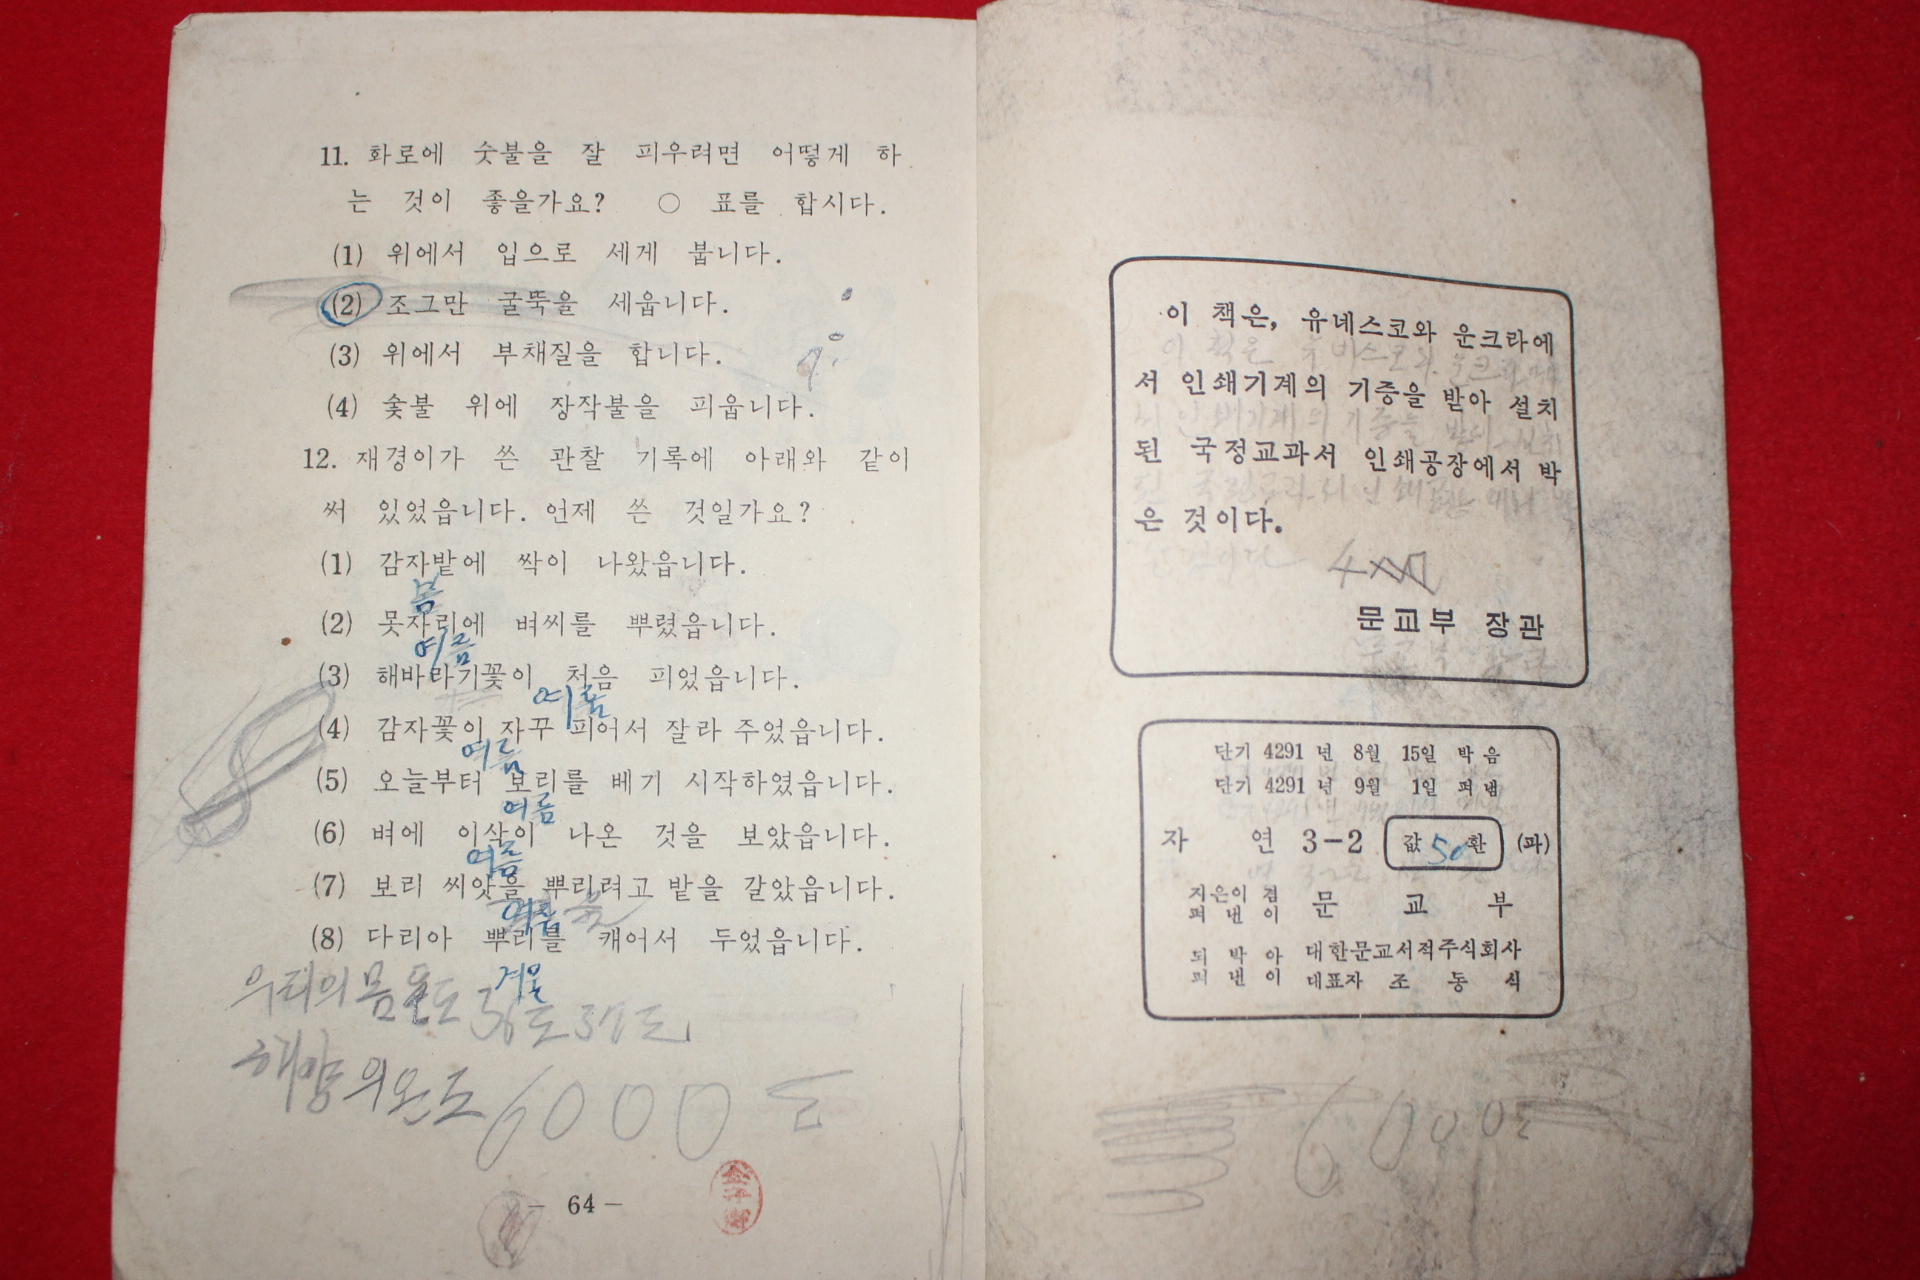 11. 화로에 숯불을 잘 피우려면 어떻게 하
는 것이 좋을가요? ○ 표를 합시다.
(1) 위에서 입으로 세게 붑니다.
(2) 조그만 굴뚝을 세웁니다.
(3) 위에서 부채질을 합니다.
(4) 숯불 위에 장작불을 피웁니다.
12. 재경이가 쓴 관찰 기록에 아래와 같이
써 있었읍니다. 언제 쓴 것일가요?
(1) 감자밭에 싹이 나왔읍니다.
봄
(2) 못자리에 벼씨를 뿌렸읍니다.
여름
(3) 해바라기꽃이 처음 피었읍니다.
여름
(4) 감자꽃이 자꾸 피어서 잘라 주었읍니다.
여름
(5) 오늘부터 보리를 베기 시작하였읍니다.
여름
(6) 벼에 이삭이 나온 것을 보았읍니다.
여름
(7) 보리 씨앗을 뿌리려고 밭을 갈았읍니다.
(8) 다리아 뿌리를 캐어서 두었읍니다.
겨울
우리의 몸 온도 36도 37도
해양의 온도 6000도
- 64 -
이 책은, 유네스코와 운크라에
서 인쇄기계의 기증을 받아 설치
된 국정교과서 인쇄공장에서 박
은 것이다.
문교부 장관
단기 4291 년 8월 15일 박음
단기 4291 년 9월 1일 펴냄
자 연 3-2 값 50 환 (파)
지은이 겸
펴 낸 이 문 교 부
되 박 아
펴 낸 이
대한문교서적주식회사
대표자 조 동 식
6000도